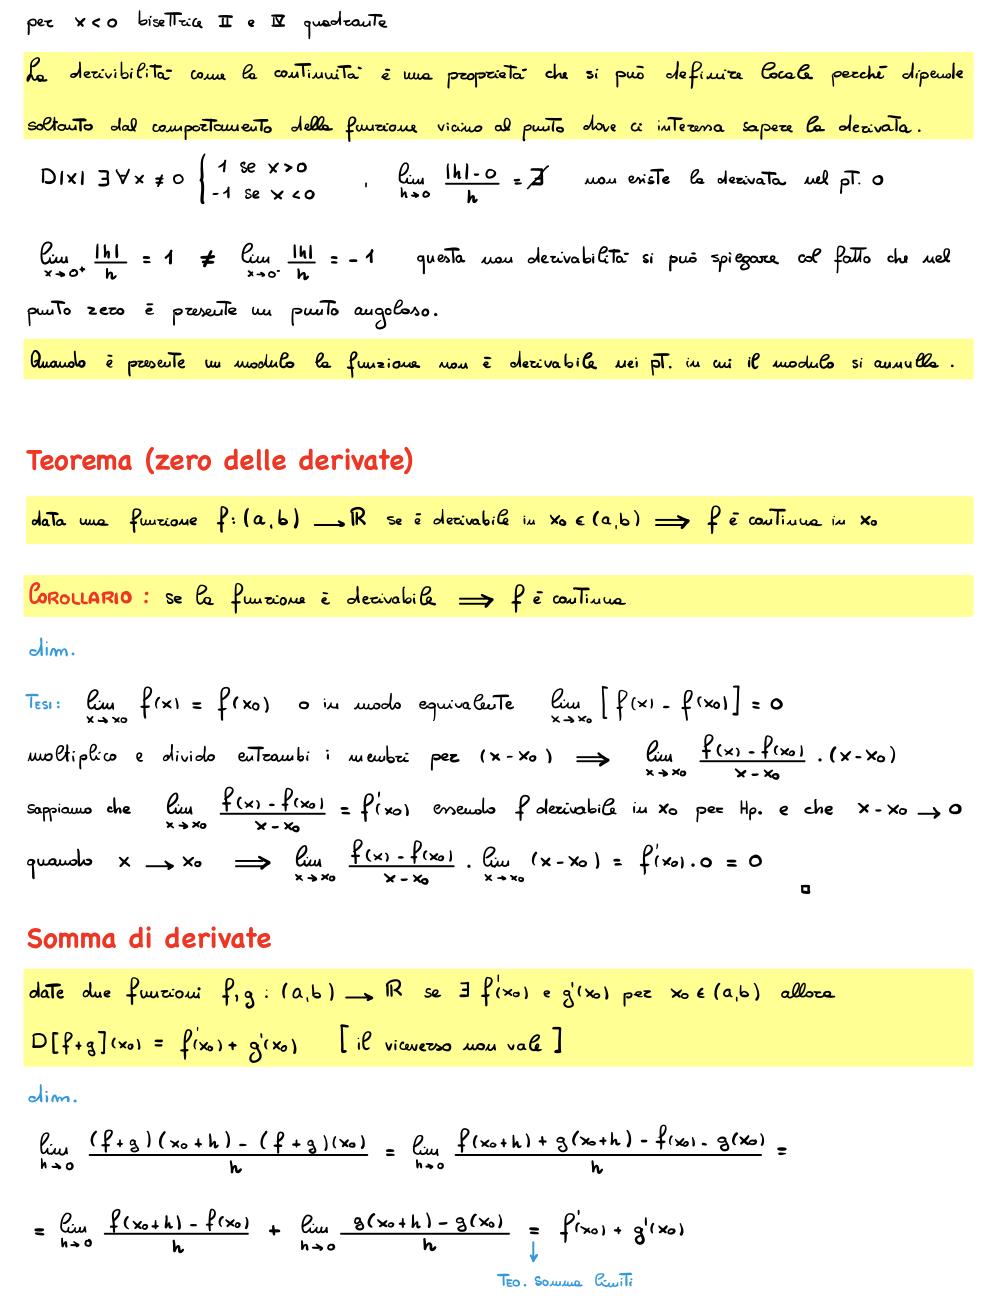 per x < 0 bisettrice II e IV quadrante
La derivibilità come la continuità è una proprietà che si può definire locale perché dipende
soltanto dal comportamento della funzione vicino al punto dove ci interessa sapere la derivata.
D|x| ∃ ∀ x ≠ 0 { 1 se x > 0 ; -1 se x < 0 , lim h→0 (|h| - 0)/h = ∄ non esiste la derivata nel pt. 0
lim x→0⁺ |h|/h = 1 ≠ lim x→0⁻ |h|/h = -1 questa non derivabilità si può spiegare col fatto che nel
punto zero è presente un punto angoloso.
Quando è presente un modulo la funzione non è derivabile nei pt. in cui il modulo si annulla.
Teorema (zero delle derivate)
data una funzione f: (a,b) → ℝ se è derivabile in x₀ ∈ (a,b) ⟹ f è continua in x₀
COROLLARIO : se la funzione è derivabile ⟹ f è continua
dim.
TESI: lim x→x₀ f(x) = f(x₀) o in modo equivalente lim x→x₀ [f(x) - f(x₀)] = 0
moltiplico e divido entrambi i membri per (x - x₀) ⟹ lim x→x₀ (f(x) - f(x₀))/(x - x₀) · (x - x₀)
sappiamo che lim x→x₀ (f(x) - f(x₀))/(x - x₀) = f'(x₀) essendo f derivabile in x₀ per Hp. e che x - x₀ → 0
quando x → x₀ ⟹ lim x→x₀ (f(x) - f(x₀))/(x - x₀) · lim x→x₀ (x - x₀) = f'(x₀) · 0 = 0
□
Somma di derivate
date due funzioni f, g : (a,b) → ℝ se ∃ f'(x₀) e g'(x₀) per x₀ ∈ (a,b) allora
D[f+g](x₀) = f'(x₀) + g'(x₀) [il viceverso non vale]
dim.
lim h→0 ((f+g)(x₀+h) - (f+g)(x₀))/h = lim h→0 (f(x₀+h) + g(x₀+h) - f(x₀) - g(x₀))/h =
= lim h→0 (f(x₀+h) - f(x₀))/h + lim h→0 (g(x₀+h) - g(x₀))/h = f'(x₀) + g'(x₀)
↓
TEO. somma limiti